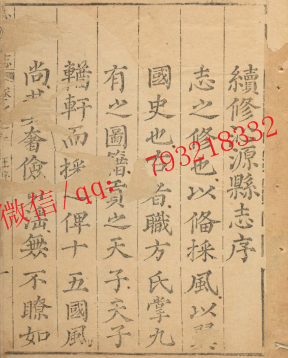 續修源縣志序
志之修也以備採風以
國史也在昔職方氏掌九
有之圖籍貢之天子天子
輶軒而採俾十五國風
尚奢儉無不瞭如
微信/qq: 793218332